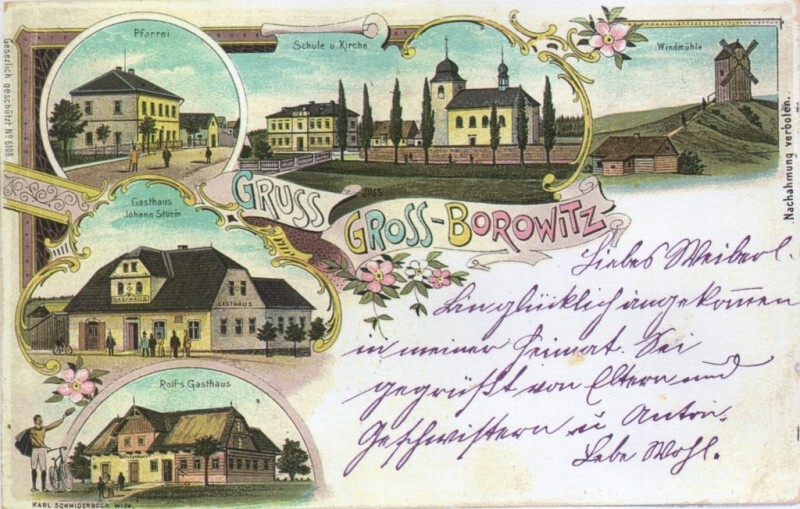 Pfarrei
Schule u. Kirche
Windmühle
Gesezlich geschützt No 6108.
Nachahmung verboten.
GRUSS AUS
GROSS-BOROWITZ
Gasthaus
Johann Sturm
GASTHAUS
GASTHAUS
Rolf's Gasthaus
KARL SCHWIDERNOCH, WIEN.
Liebes Weiberl.
Bin glücklich angekommen
in meiner Heimat. Sei
gegrüßt von Eltern und
Geschwistern u Anton.
Lebe Wohl.